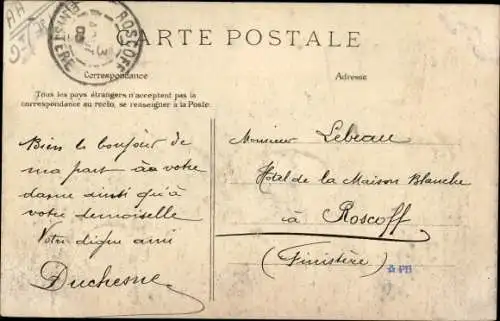 AA
ROSCOFF
FINISTÈRE
3
09
CARTE POSTALE
Correspondance
Adresse
Tous les pays étrangers n'acceptent pas la
correspondance au recto, se renseigner à la Poste.
Bien le bonjour de
ma part à votre
dame ainsi qu'à
votre demoiselle
Votre digne ami
Duchesne
Monsieur Lebeau
Hôtel de la Maison Blanche
à Roscoff
(Finistère)
PB